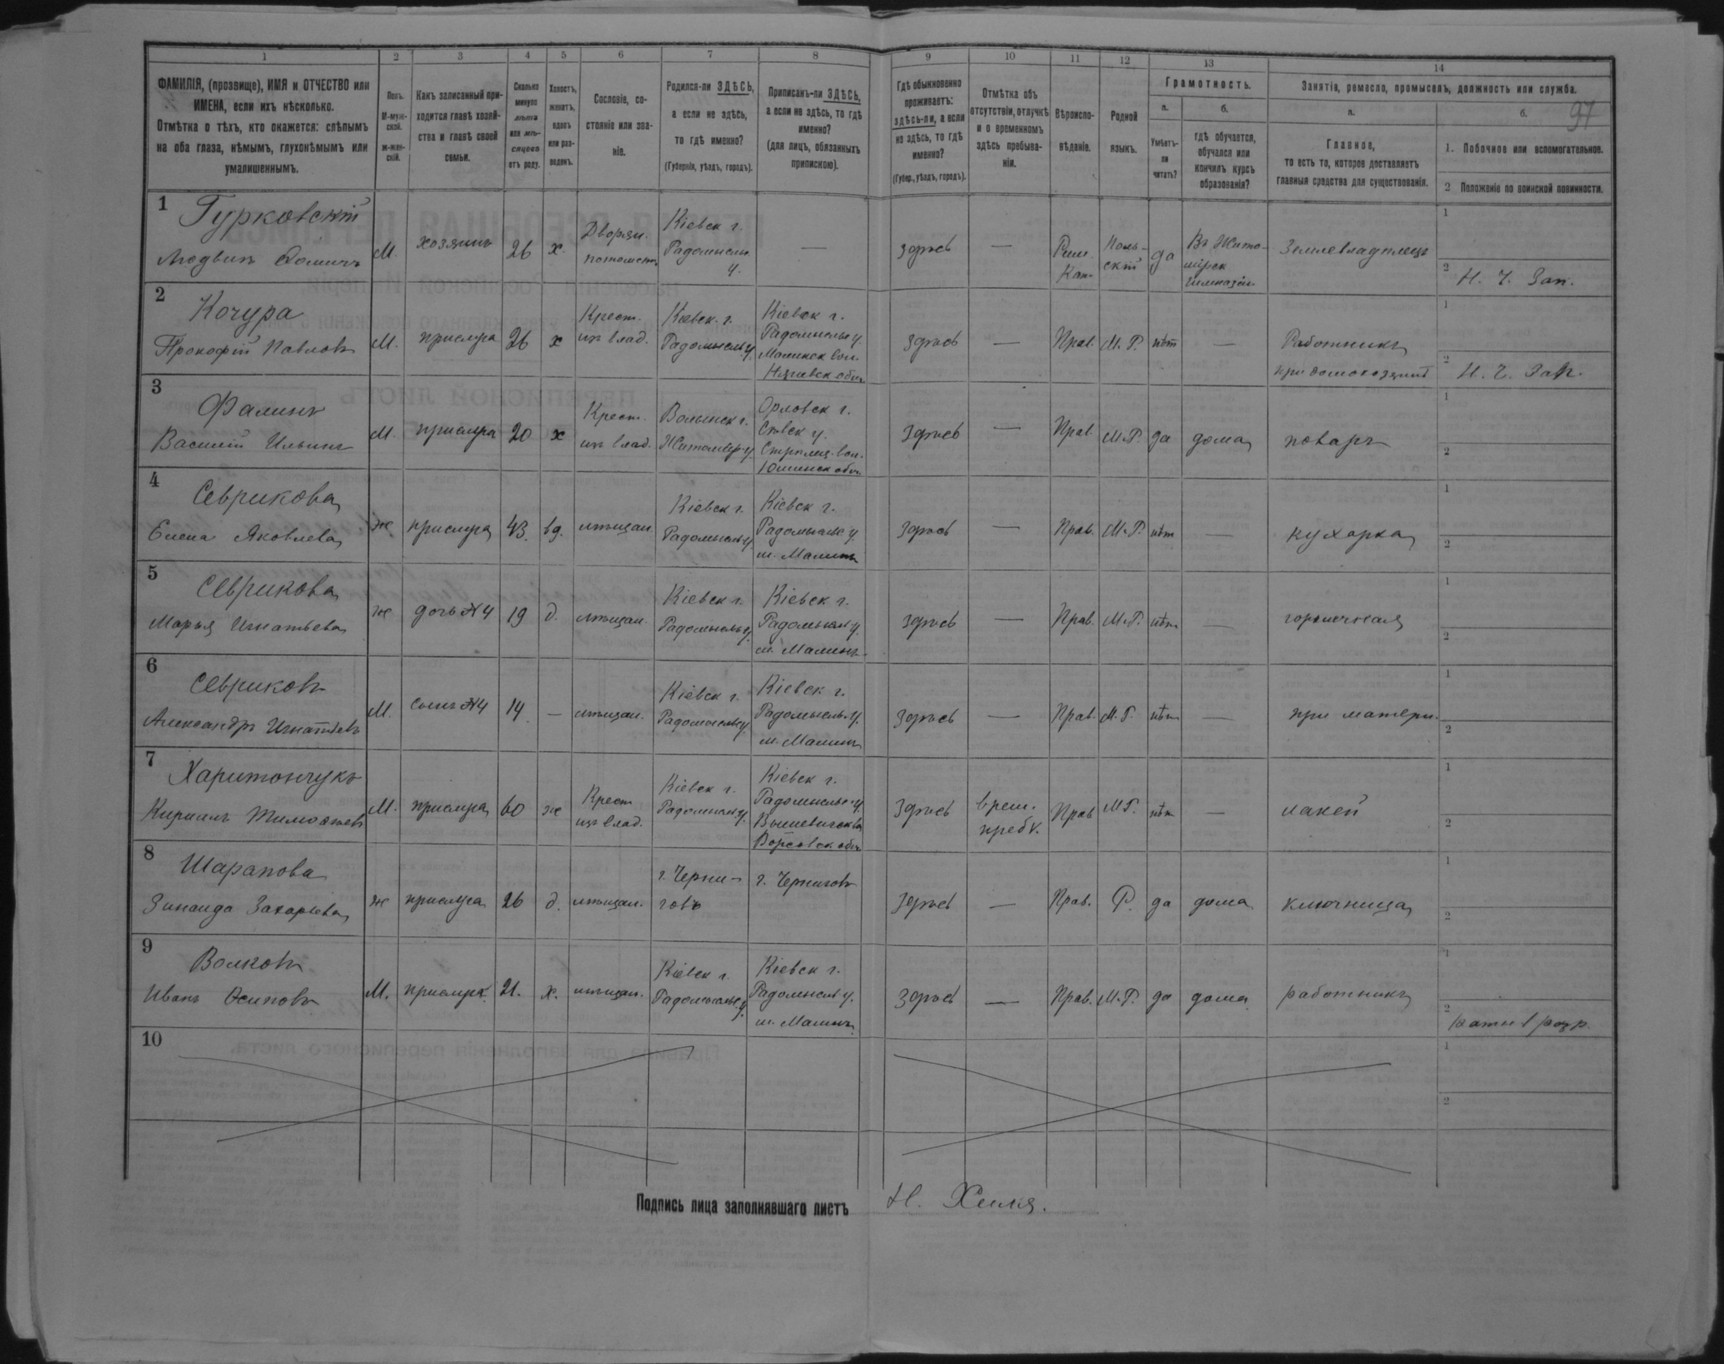 1 2 3 4 5 6 7 8 9 10 11 12 13 14
ФАМИЛІЯ, (прозвище), ИМЯ и ОТЧЕСТВО или
ИМЕНА, если ихъ нѣсколько.
Отмѣтка о тѣхъ, кто окажется: слѣпымъ
на оба глаза, нѣмымъ, глухонѣмымъ или
умалишеннымъ.
Полъ.
М-муж-
ской.
ж-жен-
скій.
Какъ записанный при-
ходится главѣ хозяй-
ства и главѣ своей
семьи.
Сколько
минуло
лѣтъ
или мѣ-
сяцевъ
отъ роду.
Холостъ,
женатъ,
вдовъ
или раз-
веденъ.
Сословіе, со-
стояніе или зва-
ніе.
Родился-ли ЗДѢСЬ,
а если не здѣсь,
то гдѣ именно?
(Губернія, уѣздъ, городъ).
Приписанъ-ли ЗДѢСЬ,
а если не здѣсь, то гдѣ
именно?
(для лицъ, обязанныхъ
припискою).
Гдѣ обыкновенно
проживаетъ:
здѣсь-ли, а если
не здѣсь, то гдѣ
именно?
(Губер., уѣздъ, городъ).
Отмѣтка объ
отсутствіи, отлучкѣ
и о временномъ
здѣсь пребыва-
ніи.
Вѣроиспо-
вѣданіе.
Родной
языкъ.
Грамотность.
а.
Умѣетъ-
ли
читать?
б.
гдѣ обучается,
обучался или
кончилъ курсъ
образованія?
Занятіе, ремесло, промыселъ, должность или служба.
а.
Главное,
то есть то, которое доставляетъ
главныя средства для существованія.
б.
97
1. Побочное или вспомогательное.
2 Положеніе по воинской повинности.
1
Гурковскій
Людвигъ
М.
хозяинъ
26
х.
Дворян.
потомств.
Кіевск г.
Радомысль
у.
—
здѣсь
—
Рим.
Кат.
Поль-
скій
да
Въ Жито-
мірск
гимназіи
Землевладѣлецъ
1
2
Н. Ч. Зап.
2
Кочура
Прокофій Павловъ
М.
прислуга
26
х
Крест.
изъ влад.
Кіевск. г.
Радомысль у.
Кіевск г.
Радомысль у.
Малинск вол.
здѣсь
—
Прав.
М. Р.
нѣт
—
Работникъ
при домохозяинѣ
1
2
Н. Ч. Зап.
3
Фалинъ
Василій Ильинъ
М.
прислуга
20
х
Крест.
изъ влад.
Волынск г.
Житомір у.
Орловск г.
Сѣвск у.
здѣсь
—
Прав
М.Р.
да
дома
поваръ
1
2
4
Севрикова
Елена Яковлева
ж
прислуга
43.
вд.
мѣщан.
Кіевск г.
Радомысль у.
Кіевск г.
Радомысль у
м. Малинъ
здѣсь
—
Прав.
М.Р.
нѣт
—
кухарка
1
2
5
Севрикова
Марья Игнатьева
ж
дочь №4
19
д.
мѣщан.
Кіевск г.
Радомысль у.
Кіевск г.
Радомысль у.
м. Малинъ
здѣсь
—
Прав.
М.Р.
нѣт
—
горничная
1
2
6
Севриковъ
Александръ Игнатьевъ
М.
сынъ №4
14
—
мѣщан.
Кіевск г.
Радомысль у.
Кіевск г.
Радомысль у.
м. Малинъ
здѣсь
—
Прав.
М. Р.
нѣт
—
при матери.
1
2
7
Харитончукъ
Кириллъ Тимофѣевъ
М.
прислуга
60
ж
Крест.
изъ влад.
Кіевск г.
Радомысль у.
Кіевск г.
Радомысль у.
Ворсовск общ.
здѣсь
врем.
пребв.
Прав
М.Р.
нѣт
—
лакей
1
2
8
Шарапова
Зинаида Захарьева
ж
прислуга
26
д.
мѣщан.
г. Черни-
говъ
г. Черниговъ
здѣсь
—
Прав.
Р.
да
дома.
ключница
1
2
9
Волковъ
Иванъ Осиповъ
М.
прислуг.
21.
х.
мѣщан.
Кіевск г.
Радомысль у.
Кіевск г.
Радомысль у.
м. Малинъ
здѣсь
—
Прав.
М.Р.
да
дома
работникъ
1
2
ратн 1 разр.
10
1
2
Подпись лица заполнявшаго листъ
Н.